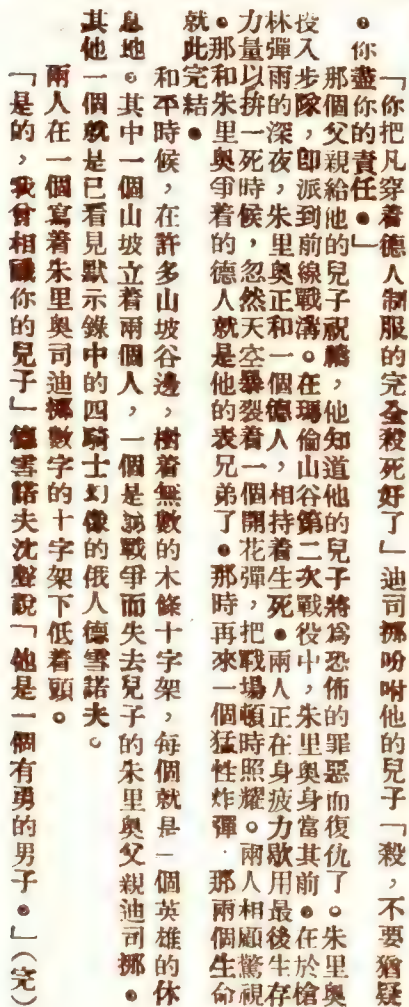 「你把凡穿着德人制服的完全殺死好了」迪司挪吩咐他的兒子「殺,不要猶疑
。你盡你的責任。」
那個父親給他的兒子祝禱,他知道他的兒子將爲恐佈的罪惡而復仇了。朱里奧
投入步隊,卽派到前線戰溝。在瑪倫山谷第二次戰役中,朱里奧身當其前。在於槍
林彈雨的深夜,朱里奧正和一個德人,相持着生死。兩人正在身疲力歇用最後生存
力量以拚一死時候,忽然天空暴裂着一個開花彈,把戰場頓時照耀。兩人相顧驚視
。那和朱里奧爭着的德人就是他的表兄弟了。那時再來一個猛性炸彈 那兩個生命
就此完結。
和平時候,在許多山坡谷邊,樹着無數的木條十字架,每個就是一個英雄的休
息地。其中一個山坡立着兩個人,一個是爲戰爭而失去兒子的朱里奧父親迪司挪。
其他一個就是已看見默示錄中的四騎士幻像的俄人德雪諾夫。
兩人在一個寫着朱里奧司迪挪數字的十字架下低着頭。
「是的,我會相識你的兒子」德雪諾夫沈聲說「他是一個有勇的男子。」(完)